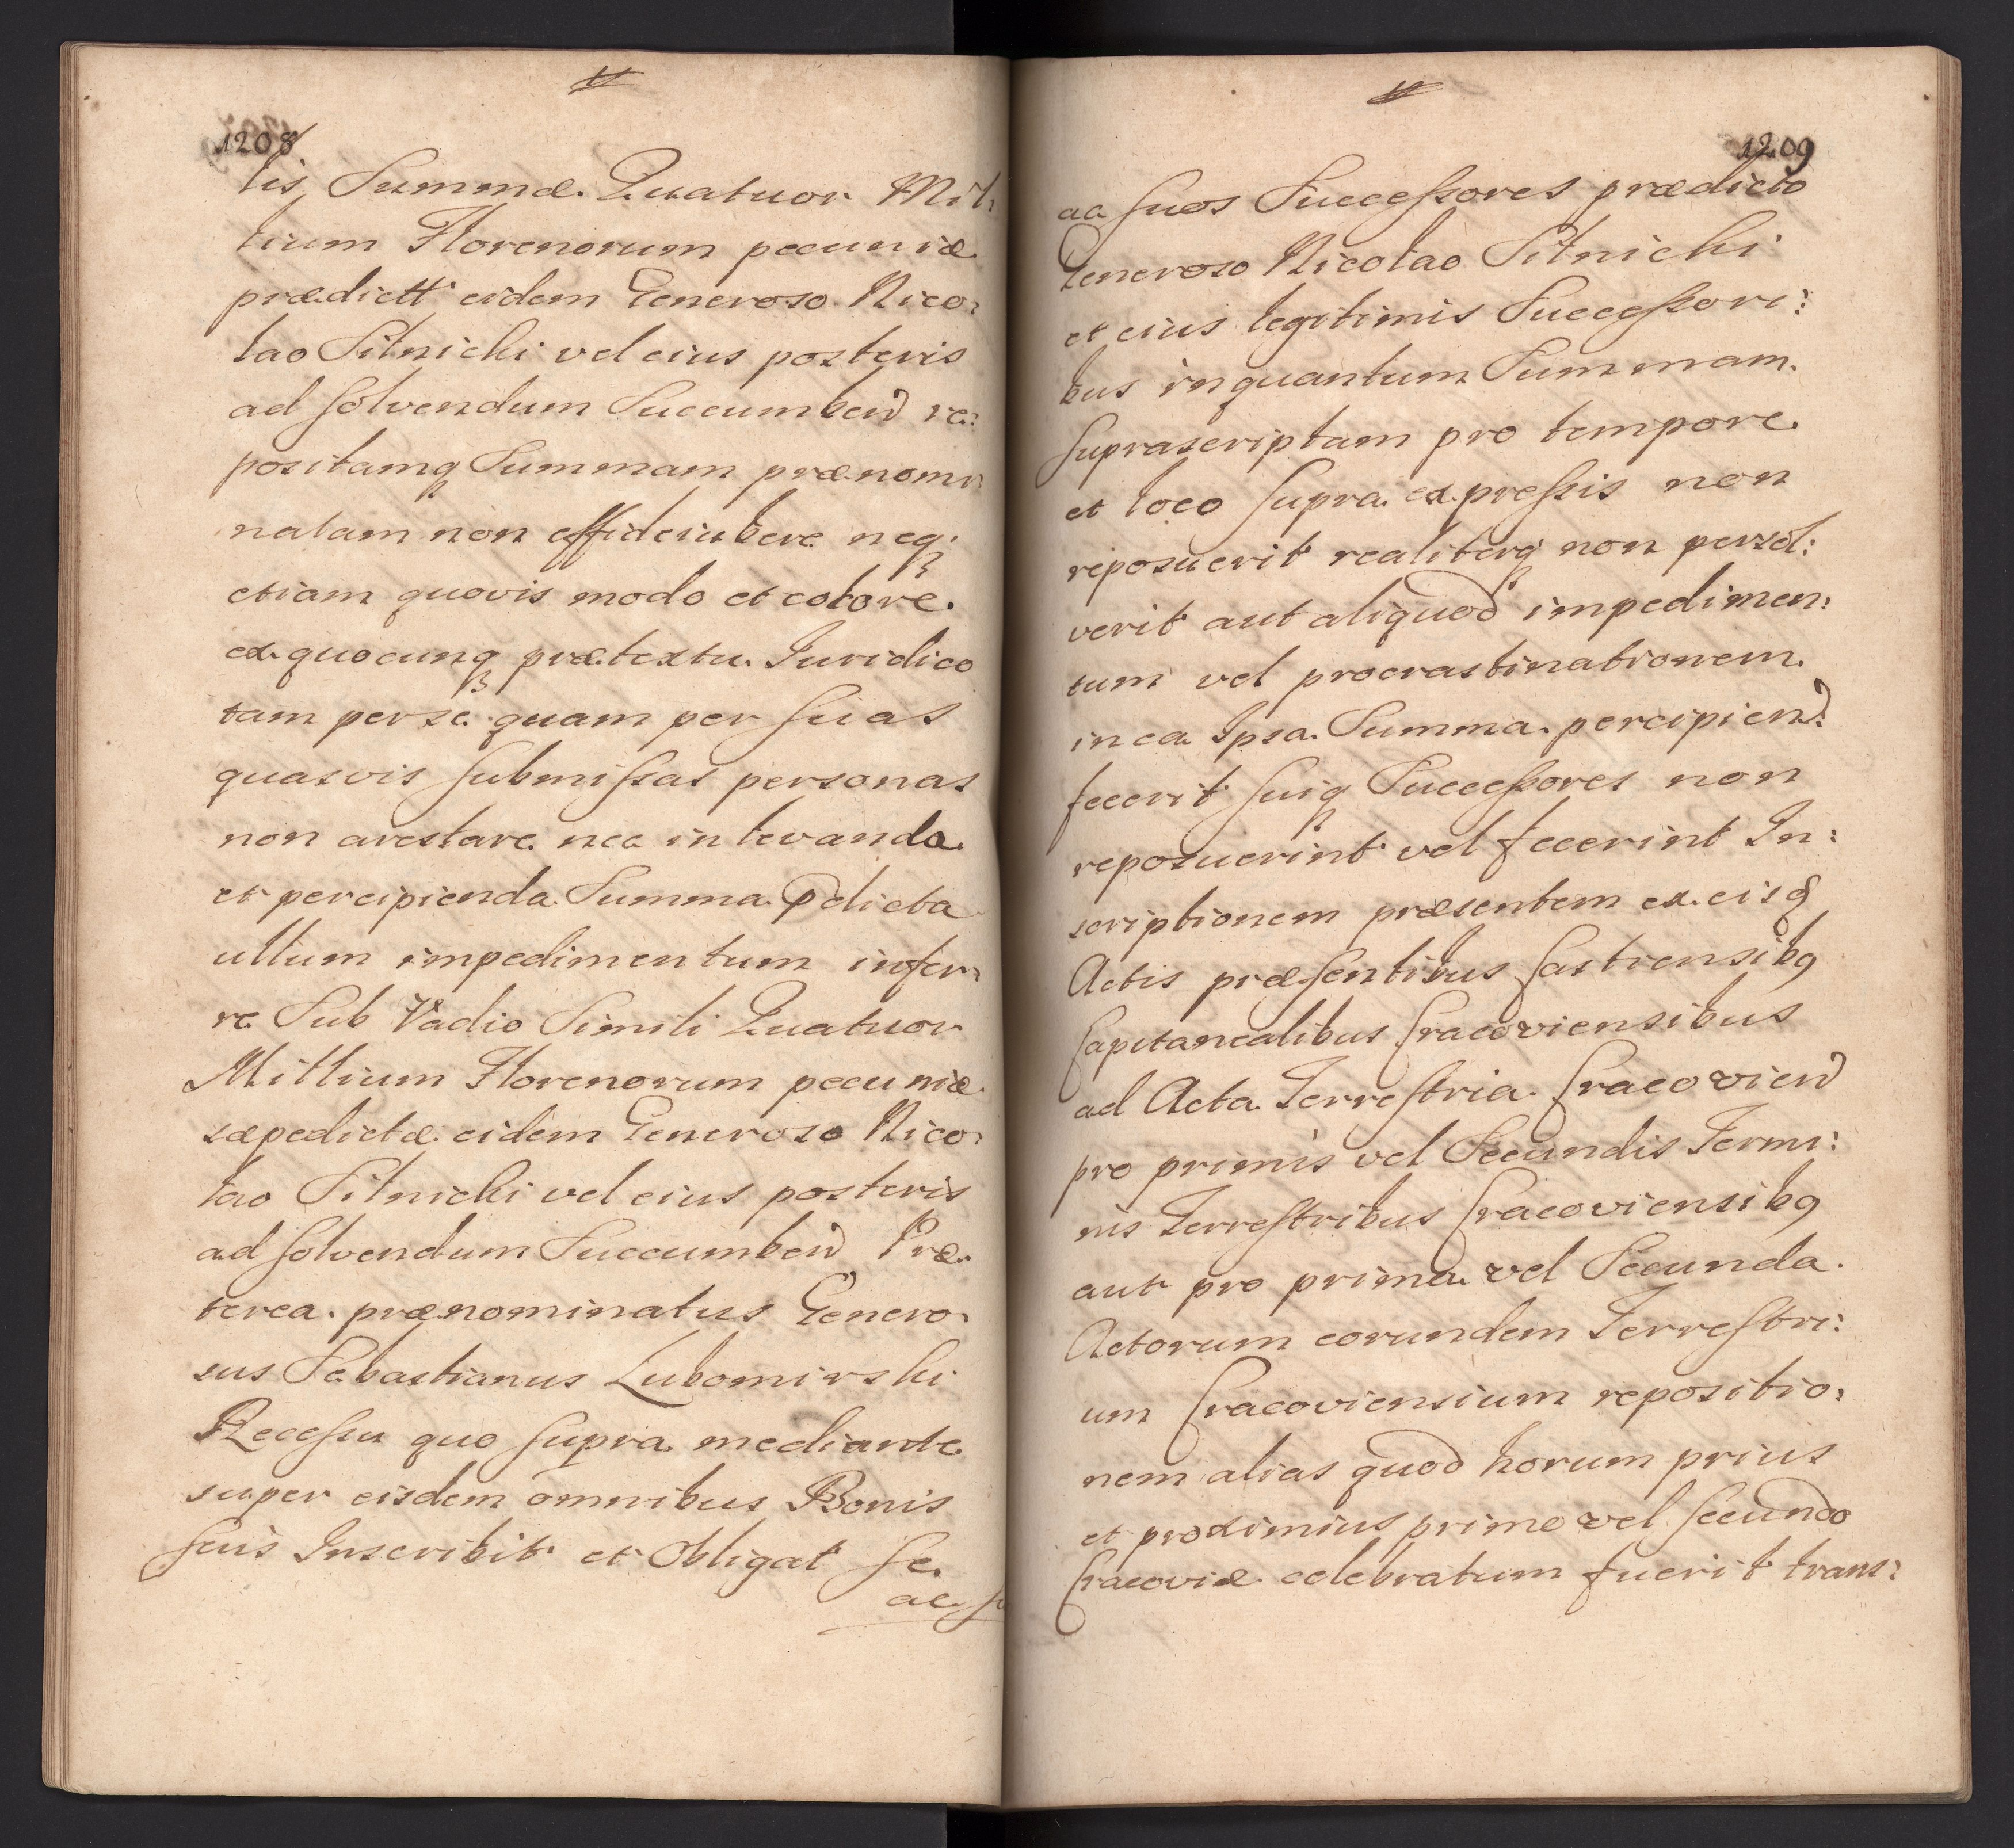 1208
lis Summæ Quatuor Mil:
lium Florenorum pecuniæ
prædictt eidem Generoso Nico:
lao Silnicki vel eius posteris
ad solvendum Succumbend re:
positamq Summam prænomi:
natam non effideiubere neq
etiam quovis modo et colore
ex quocunq prætextu Iuridico
tam per se quam per suas
quasvis submissas personas
non arestare nec in levanda
et percipienda Summa pdicta
ullum impedimentum infer:
re Sub Vadio Simili Quatuor
Millium Florenorum pecuniæ
sæpedictæ eidem Generoso Nico:
lao Silnicki vel eius posteris
ad solvendum Succumbend Præ:
terea prænominatus Genero:
sus Sebastianus Lubomirski
Recessu quo supra mediante
super eisdem omnibus Bonis
suis Inscribit et Obligat se
ac su
1209
ac suos Successores prædicto
Generoso Nicolao Silnicki
et eius legitimis Successori:
bus inquantum Summam
suprascriptam pro tempore
et loco supra expressis non
reposuerit realiterq non persol:
verit aut aliquod impedimen:
tum vel procrastinationem
in ea Ipsa Summa percipiend:
fecerit suiq Successores non
reposuerint vel fecerint In:
scriptionem præsentem ex eisd
Actis præsentibus Castrensibq
Capitanealibus Cracoviensibus
ad Acta Terrestria Cracoviend
pro primis vel Secundis Termi:
nis Terrestribus Cracoviensibq
aut pro prima vel Secunda
Actorum eorundem Terrestri:
um Cracoviensium repositio:
nem alias quod horum prius
et proximius primo vel secundo
Cracoviæ celebratum fuerit trans: